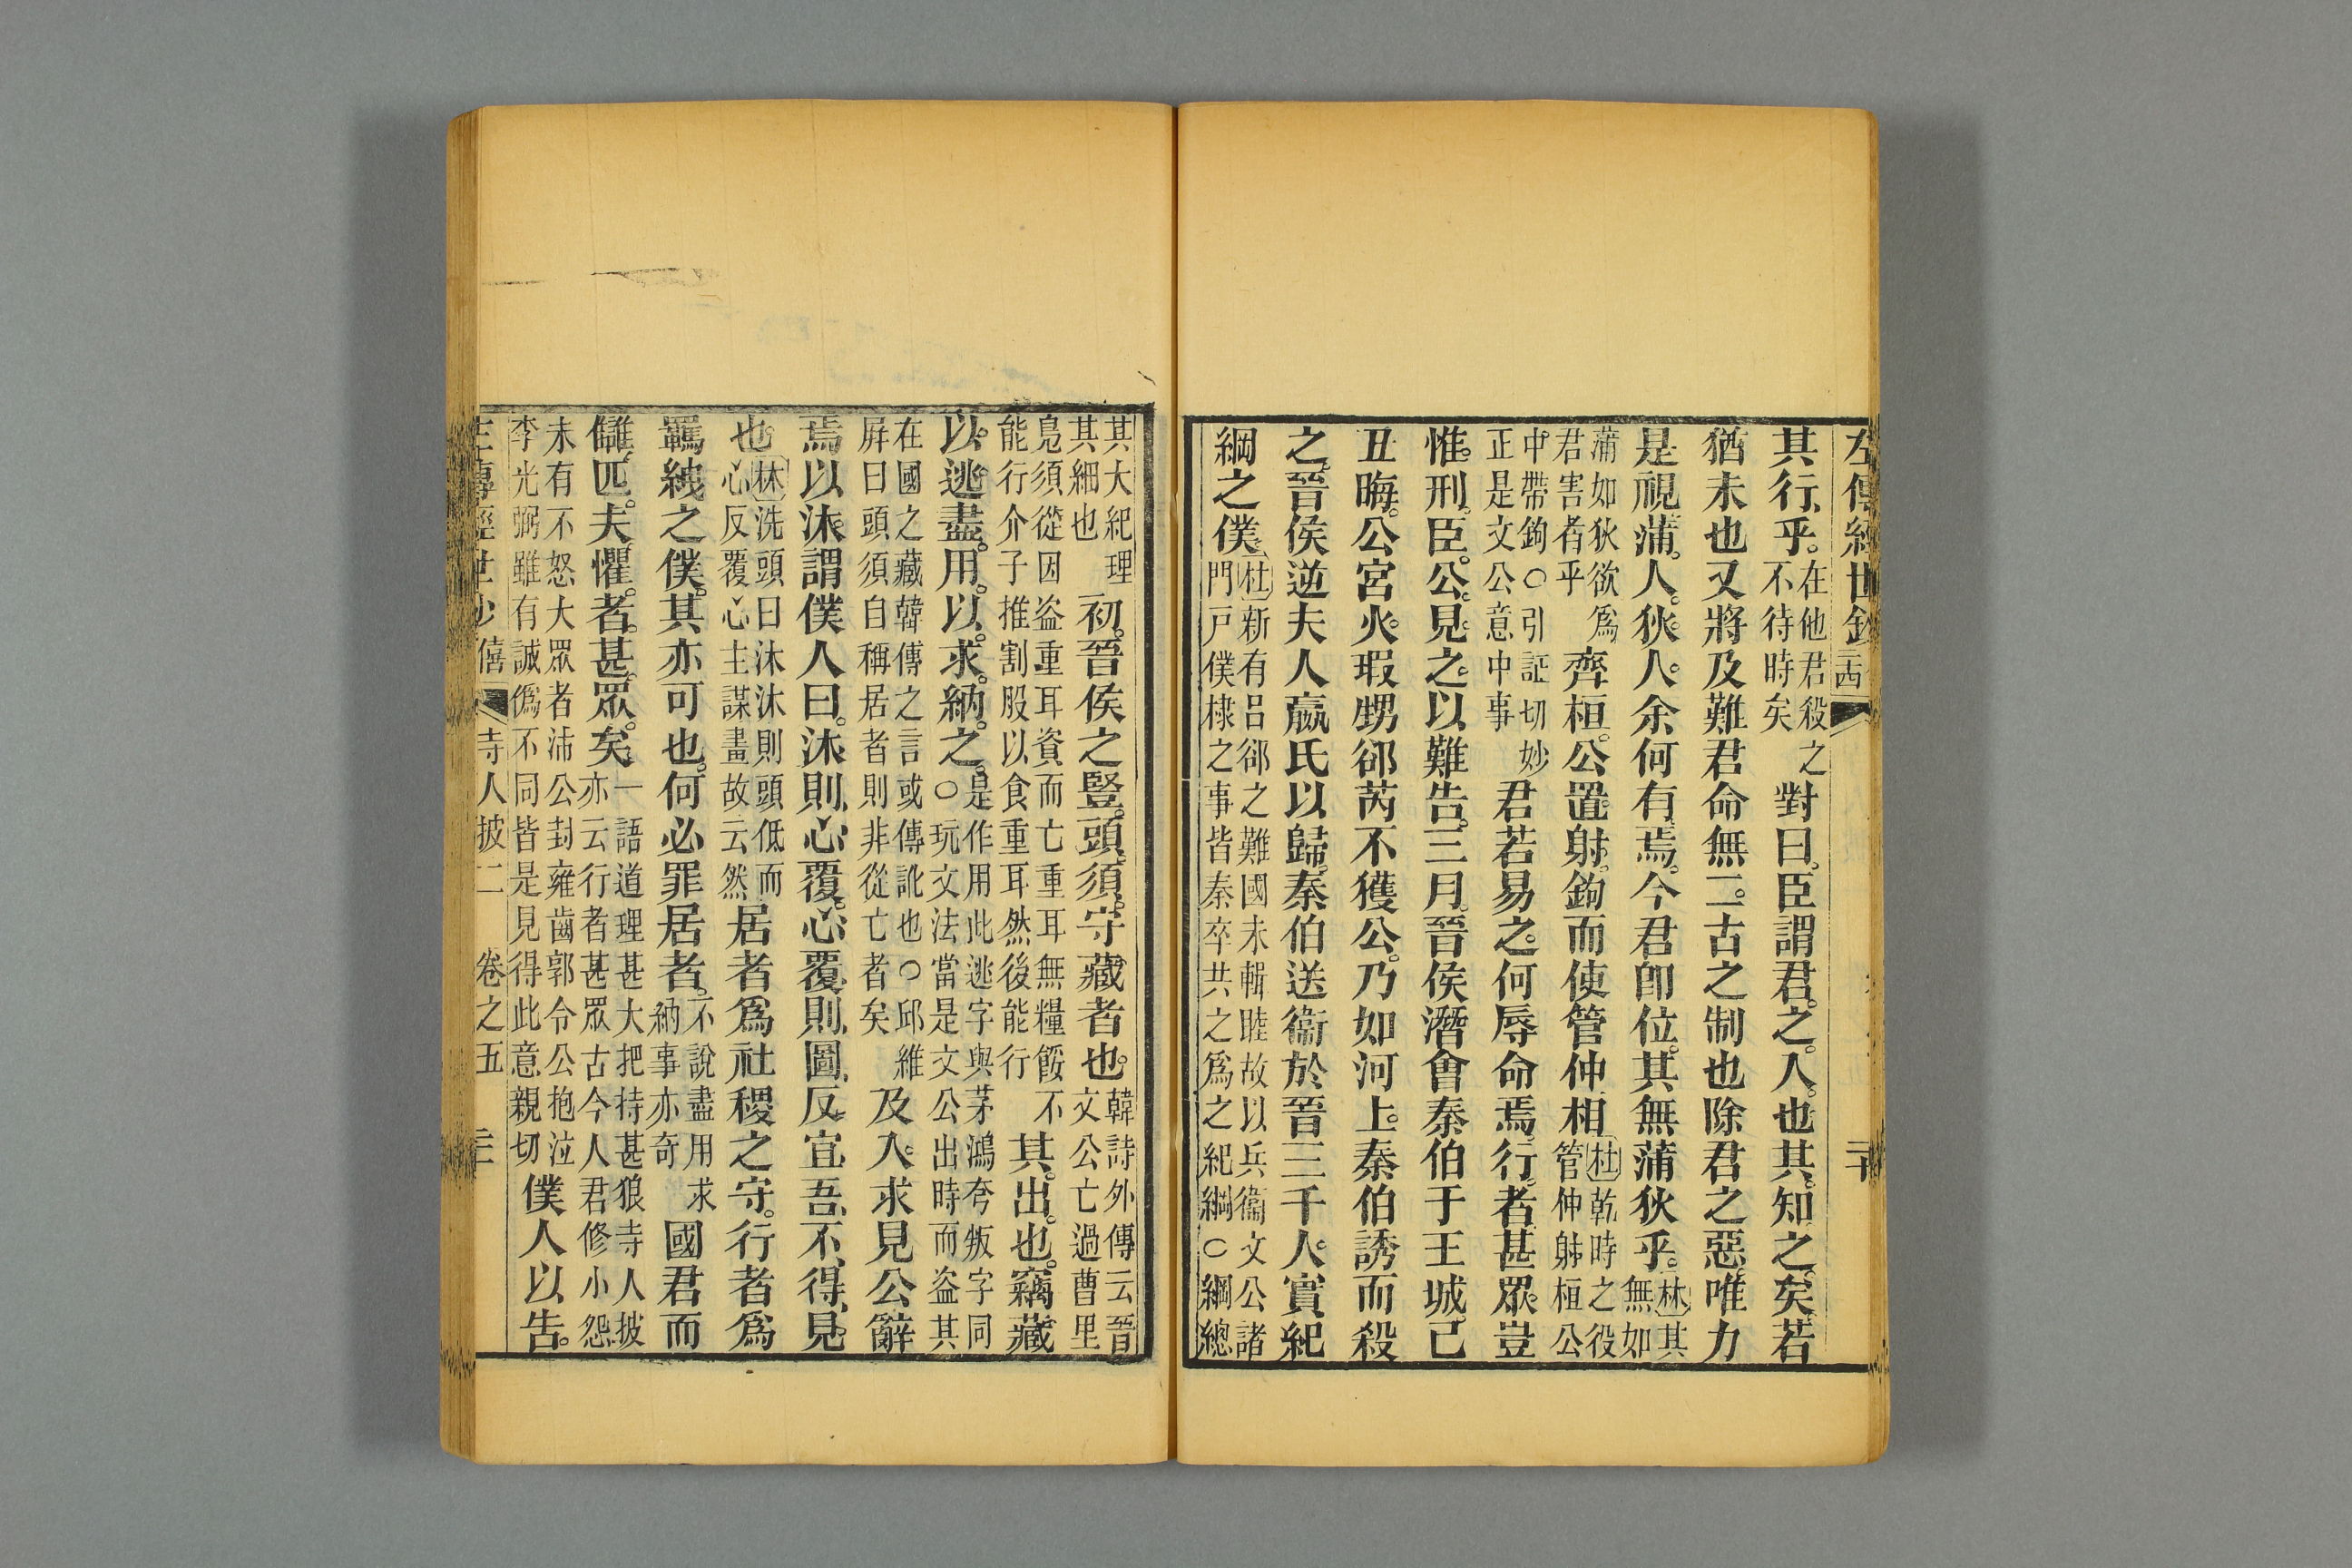 左傳經世鈔 二西 二十
其行乎在他君殺之不待時矣對曰臣謂君之入也其知之矣若
猶未也又將及難君命無二古之制也除君之惡唯力
是視蒲人狄人余何有焉今君卽位其無蒲狄乎林其無如
蒲如狄欲爲君害者乎齊桓公置射鉤而使管仲相杜乾時之役管仲射桓公
中帶鉤○引証切妙正是文公意中事君若易之何辱命焉行者甚眾豈
惟刑臣公見之以難告三月晉侯潛會秦伯于王城己
丑晦公宮火瑕甥郤芮不獲公乃如河上秦伯誘而殺
之晉侯逆夫人嬴氏以歸秦伯送衞於晉三千人實紀
綱之僕杜新有呂郤之難國未輯睦故以兵衞文公諸門戸僕棣之事皆秦卒共之爲之紀綱○綱總
其大紀理其細也初晉侯之豎頭須守藏者也韓詩外傳云晉文公亡過曹里
鳧須從因盜重耳資而亡重耳無糧餒不能行介子推割股以食重耳然後能行其出也竊藏
以逃盡用以求納之是作用此逃字與茅鴻夸叛字同○玩文法當是文公出時而盜其
在國之藏韓傳之言或傳訛也○邱維屛曰頭須自稱居者則非從亡者矣及入求見公辭
焉以沐謂僕人曰沐則心覆心覆則圖反宜吾不得見
也林洗頭曰沐沐則頭低而心反覆心主謀畫故云然居者爲社稷之守行者爲
羈絏之僕其亦可也何必罪居者不說盡用求納事亦奇國君而
讎匹夫懼者甚眾矣一語道理甚大把持甚狼寺人披亦云行者甚眾古今人君修小怨
未有不怒大眾者沛公封雍齒郭令公抱泣李光弼雖有誠僞不同皆是見得此意親切僕人以告
左傳經世鈔 僖 寺人披二 卷之五 二十一